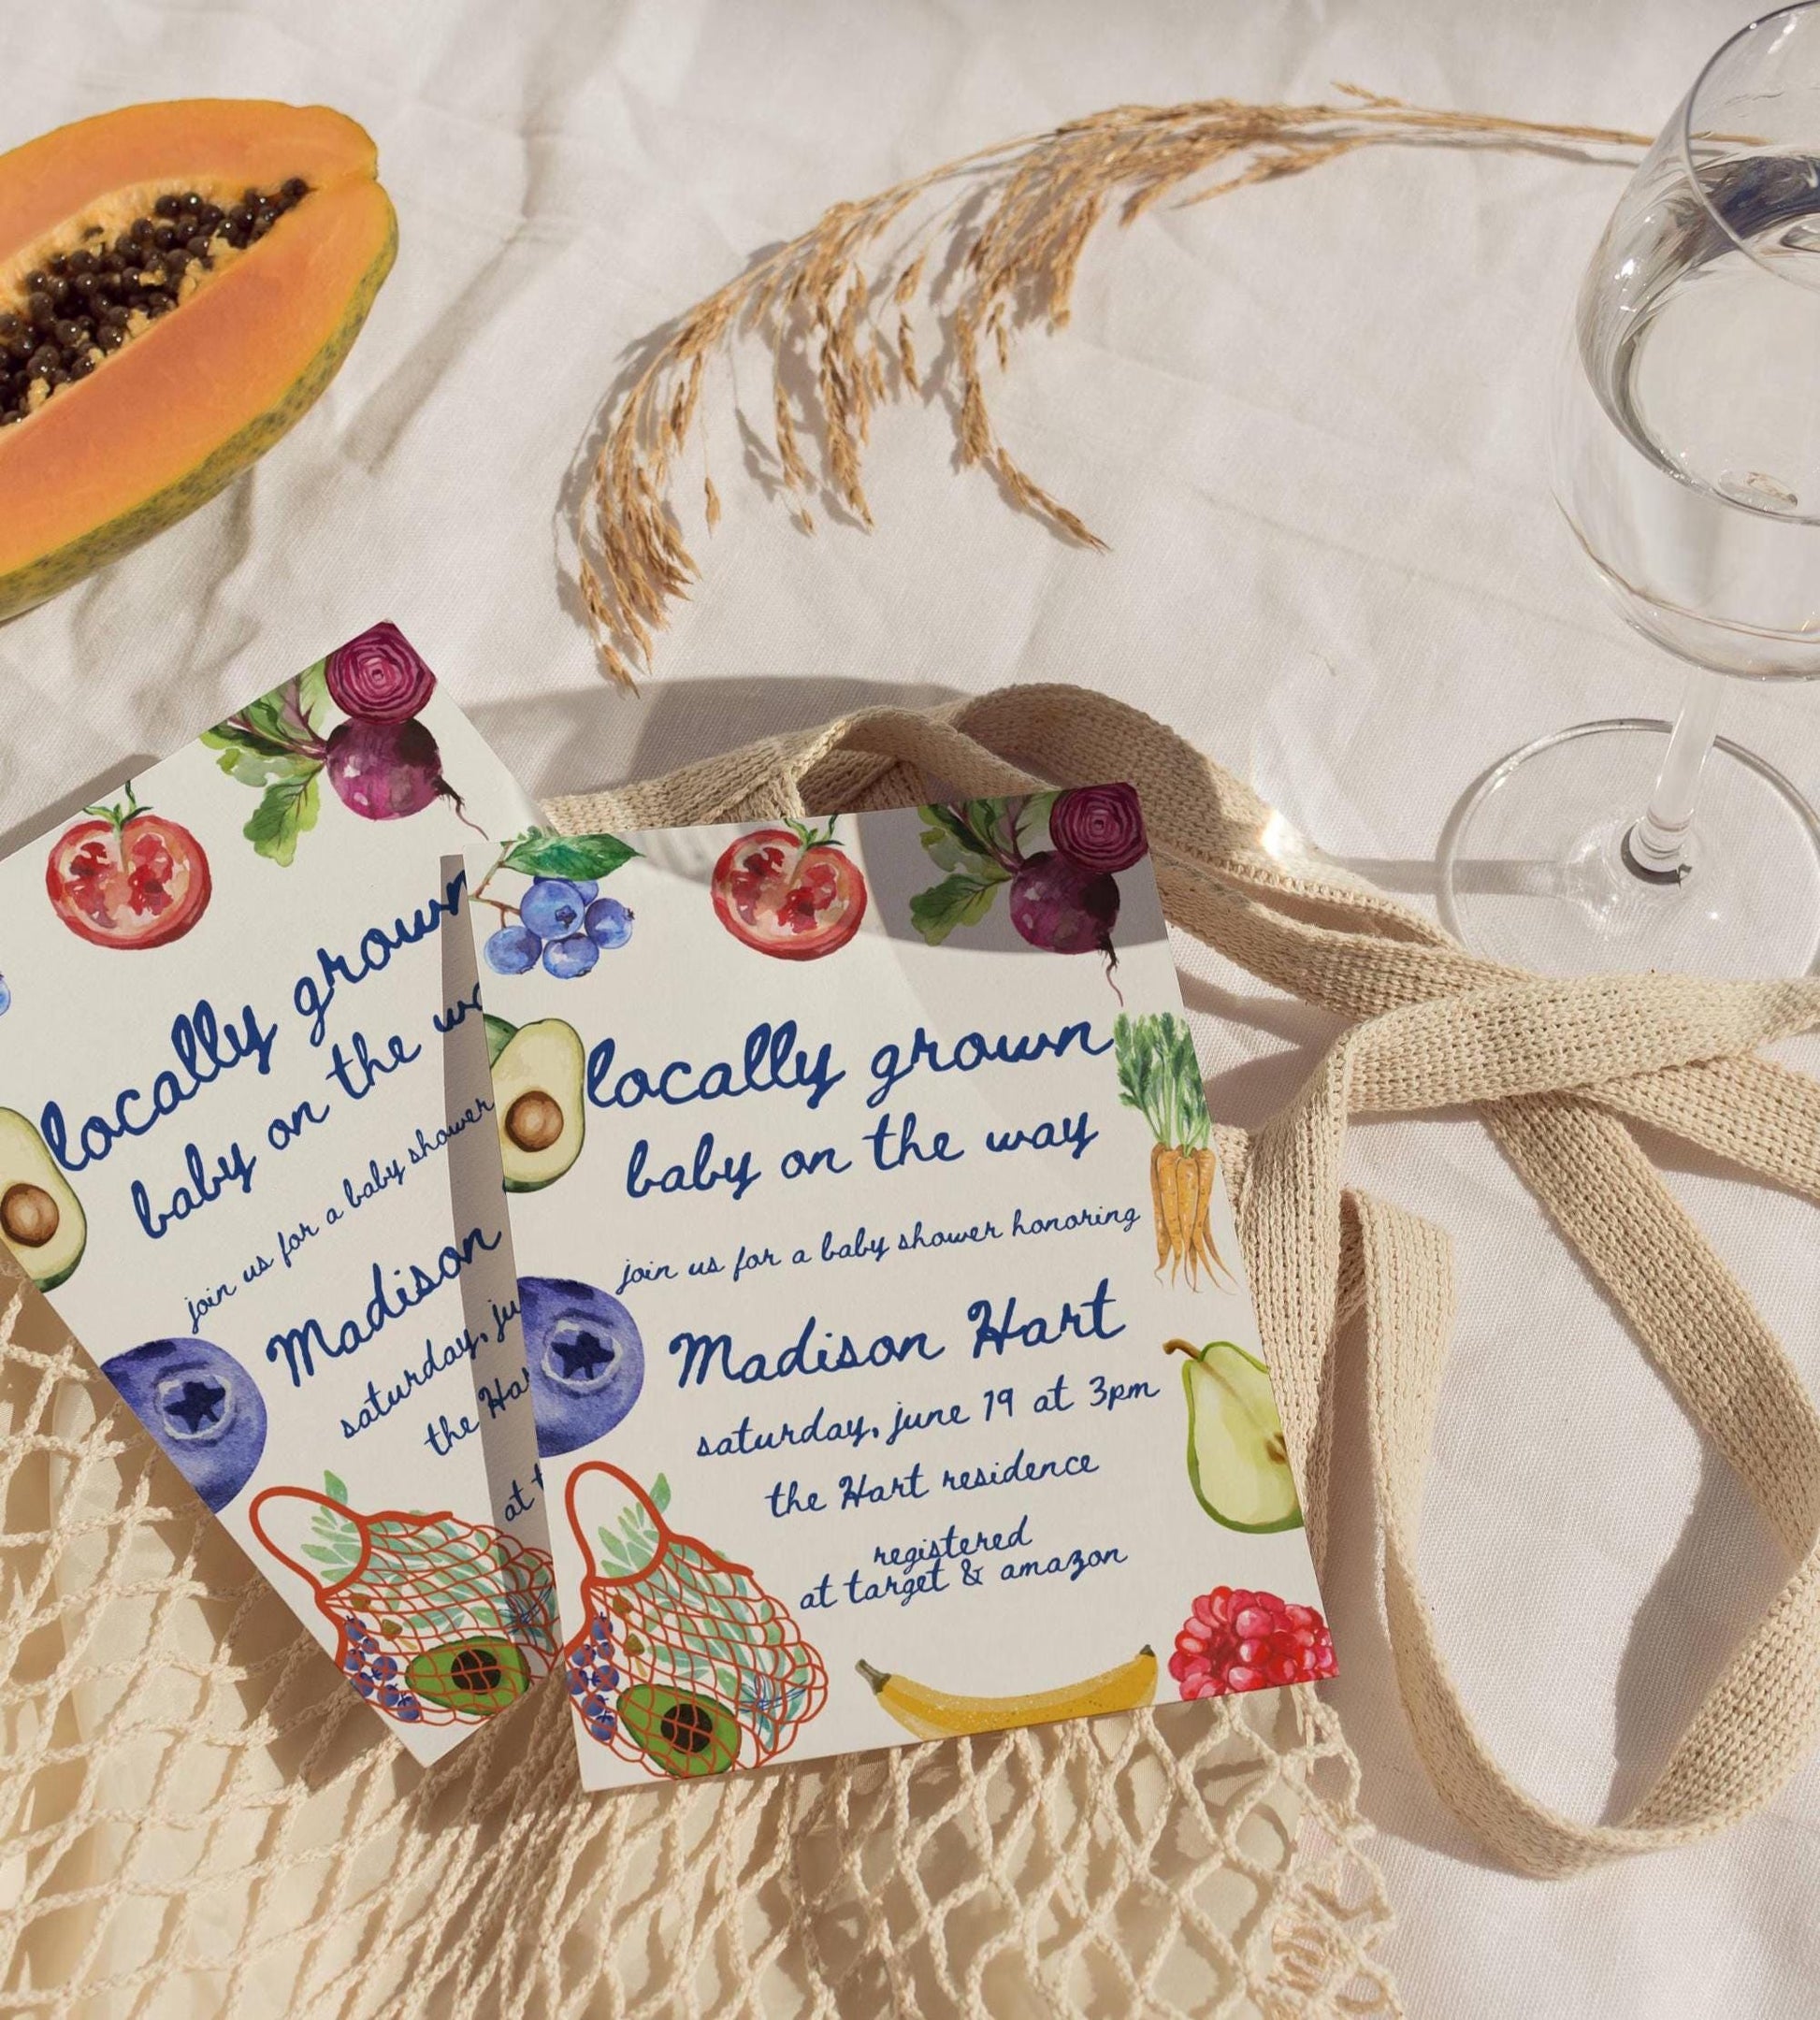 locally grown
baby on the wa
join us for a baby shower
Madison
saturday, ju
the Har
at t
locally grown
baby on the way
join us for a baby shower honoring
Madison Hart
saturday, june 19 at 3pm
the Hart residence
registered
at target & amazon